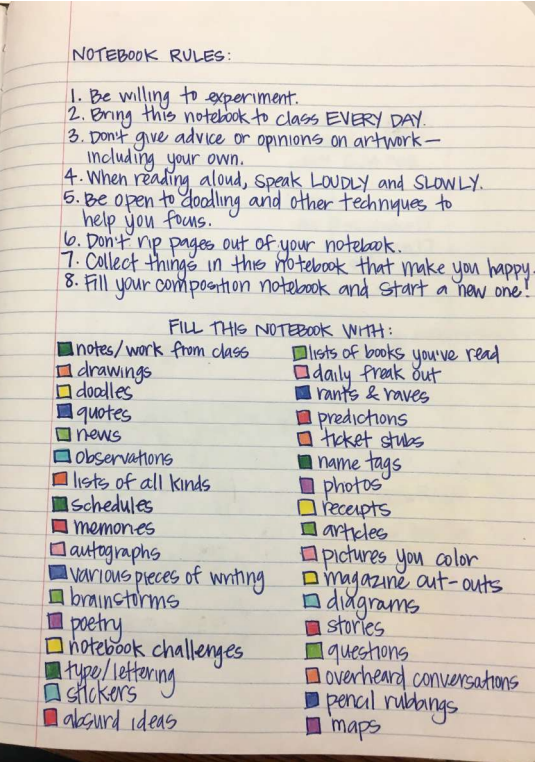 NOTEBOOK RULES:
1. Be willing to experiment.
2. Bring this notebook to class EVERY DAY.
3. Don't give advice or opinions on artwork—
including your own.
4. When reading aloud, speak LOUDLY and SLOWLY.
5. Be open to doodling and other techniques to
help you focus.
6. Don't rip pages out of your notebook.
7. Collect things in this notebook that make you happy.
8. Fill your composition notebook and start a new one!
FILL THIS NOTEBOOK WITH:
notes/work from class
drawings
doodles
quotes
news
observations
lists of all kinds
schedules
memories
autographs
various pieces of writing
brainstorms
poetry
notebook challenges
type/lettering
stickers
absurd ideas
lists of books you've read
daily freak out
rants & raves
predictions
ticket stubs
name tags
photos
receipts
articles
pictures you color
magazine cut-outs
diagrams
stories
questions
overheard conversations
pencil rubbings
maps